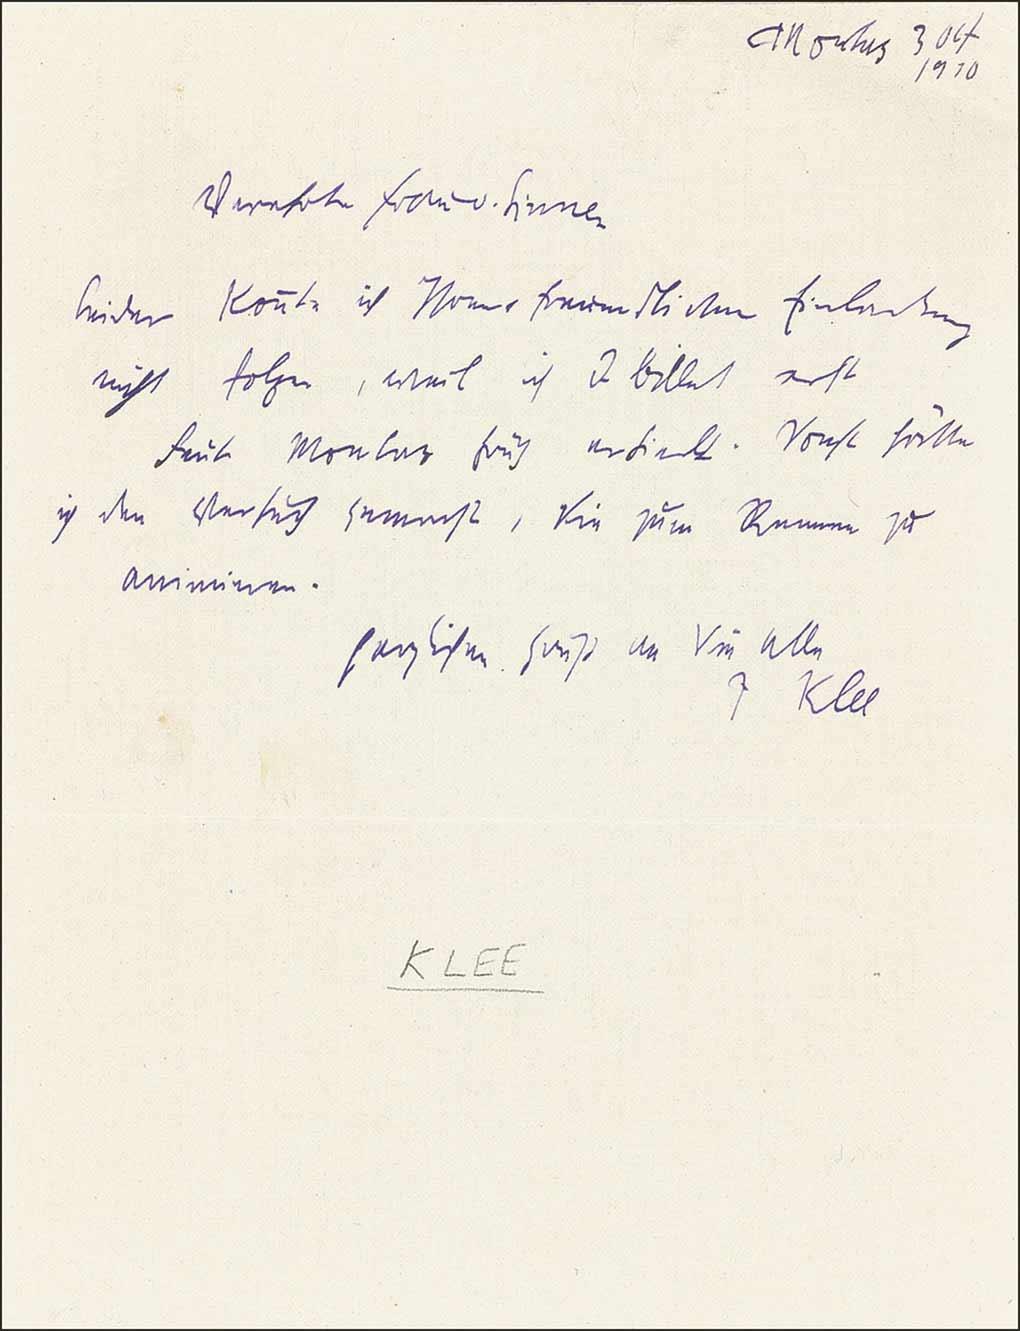 Montag 3 Okt
1910
Verehrte Frau v. Sinner
Leider konnte ich Ihrer freundlichen Einladung
nicht folgen, weil ich d Billet erst
heute Montag früh erhielt. Sonst hätte
ich den Versuch gemacht, Sie zum kommen zu
animieren.
Herzlichen Gruß an Sie alle
P Klee
KLEE